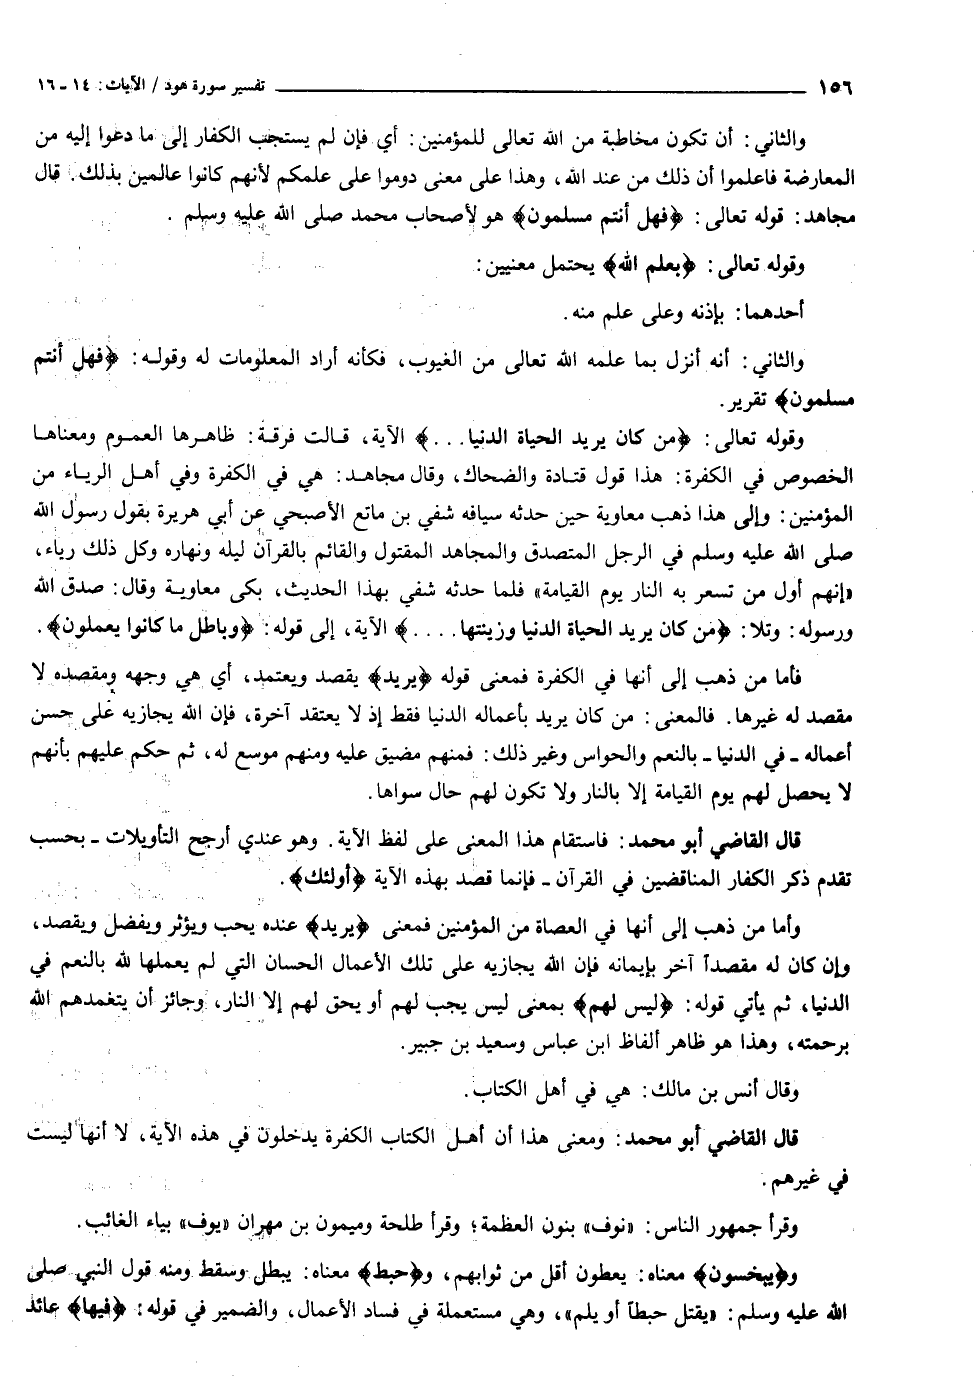 ١٥٦ ــــــــــــــــــــــــــــــــ تفسير سورة هود / الآيات: ١٤ ـ ١٦
والثاني: أن تكون مخاطبة من الله تعالى للمؤمنين: أي فإن لم يستجب الكفار إلى ما دعوا إليه من
المعارضة فاعلموا أن ذلك من عند الله، وهذا على معنى دوموا على علمكم لأنهم كانوا عالمين بذلك. قال
مجاهد: قوله تعالى: ﴿فهل أنتم مسلمون﴾ هو لأصحاب محمد صلى الله عليه وسلم.
وقوله تعالى: ﴿بعلم الله﴾ يحتمل معنيين:
أحدهما: بإذنه وعلى علم منه.
والثاني: أنه أنزل بما علمه الله تعالى من الغيوب، فكأنه أراد المعلومات له وقوله: ﴿فهل أنتم
مسلمون﴾ تقرير.
وقوله تعالى: ﴿من كان يريد الحياة الدنيا...﴾ الآية، قالت فرقة: ظاهرها العموم ومعناها
الخصوص في الكفرة: هذا قول قتادة والضحاك، وقال مجاهد: هي في الكفرة وفي أهل الرياء من
المؤمنين: وإلى هذا ذهب معاوية حين حدثه سيافه شفي بن ماتع الأصبحي عن أبي هريرة بقول رسول الله
صلى الله عليه وسلم في الرجل المتصدق والمجاهد المقتول والقائم بالقرآن ليله ونهاره وكل ذلك رياء،
«إنهم أول من تسعر به النار يوم القيامة» فلما حدثه شفي بهذا الحديث، بكى معاوية وقال: صدق الله
ورسوله: وتلا: ﴿من كان يريد الحياة الدنيا وزينتها....﴾ الآية، إلى قوله: ﴿وباطل ما كانوا يعملون﴾.
فأما من ذهب إلى أنها في الكفرة فمعنى قوله ﴿يريد﴾ يقصد ويعتمد، أي هي وجهه ومقصده لا
مقصد له غيرها. فالمعنى: من كان يريد بأعماله الدنيا فقط إذ لا يعتقد آخرة، فإن الله يجازيه على حسن
أعماله ـ في الدنيا ـ بالنعم والحواس وغير ذلك: فمنهم مضيق عليه ومنهم موسع له، ثم حكم عليهم بأنهم
لا يحصل لهم يوم القيامة إلا بالنار ولا تكون لهم حال سواها.
قال القاضي أبو محمد: فاستقام هذا المعنى على لفظ الآية. وهو عندي أرجح التأويلات ـ بحسب
تقدم ذكر الكفار المناقضين في القرآن ـ فإنما قصد بهذه الآية ﴿أولئك﴾.
وأما من ذهب إلى أنها في العصاة من المؤمنين فمعنى ﴿يريد﴾ عنده يحب ويؤثر ويفضل ويقصد،
وإن كان له مقصداً آخر بإيمانه فإن الله يجازيه على تلك الأعمال الحسان التي لم يعملها لله بالنعم في
الدنيا، ثم يأتي قوله: ﴿ليس لهم﴾ بمعنى ليس يجب لهم أو يحق لهم إلا النار، وجائز أن يتغمدهم الله
برحمته، وهذا هو ظاهر ألفاظ ابن عباس وسعيد بن جبير.
وقال أنس بن مالك: هي في أهل الكتاب.
قال القاضي أبو محمد: ومعنى هذا أن أهل الكتاب الكفرة يدخلون في هذه الآية، لا أنها ليست
في غيرهم.
وقرأ جمهور الناس: «نوف» بنون العظمة؛ وقرأ طلحة وميمون بن مهران «يوف» بياء الغائب.
و﴿يبخسون﴾ معناه: يعطون أقل من ثوابهم، و﴿حبط﴾ معناه: يبطل وسقط ومنه قول النبي صلى
الله عليه وسلم: «يقتل حبطاً أو يلم»، وهي مستعملة في فساد الأعمال، والضمير في قوله: ﴿فيها﴾ عائد